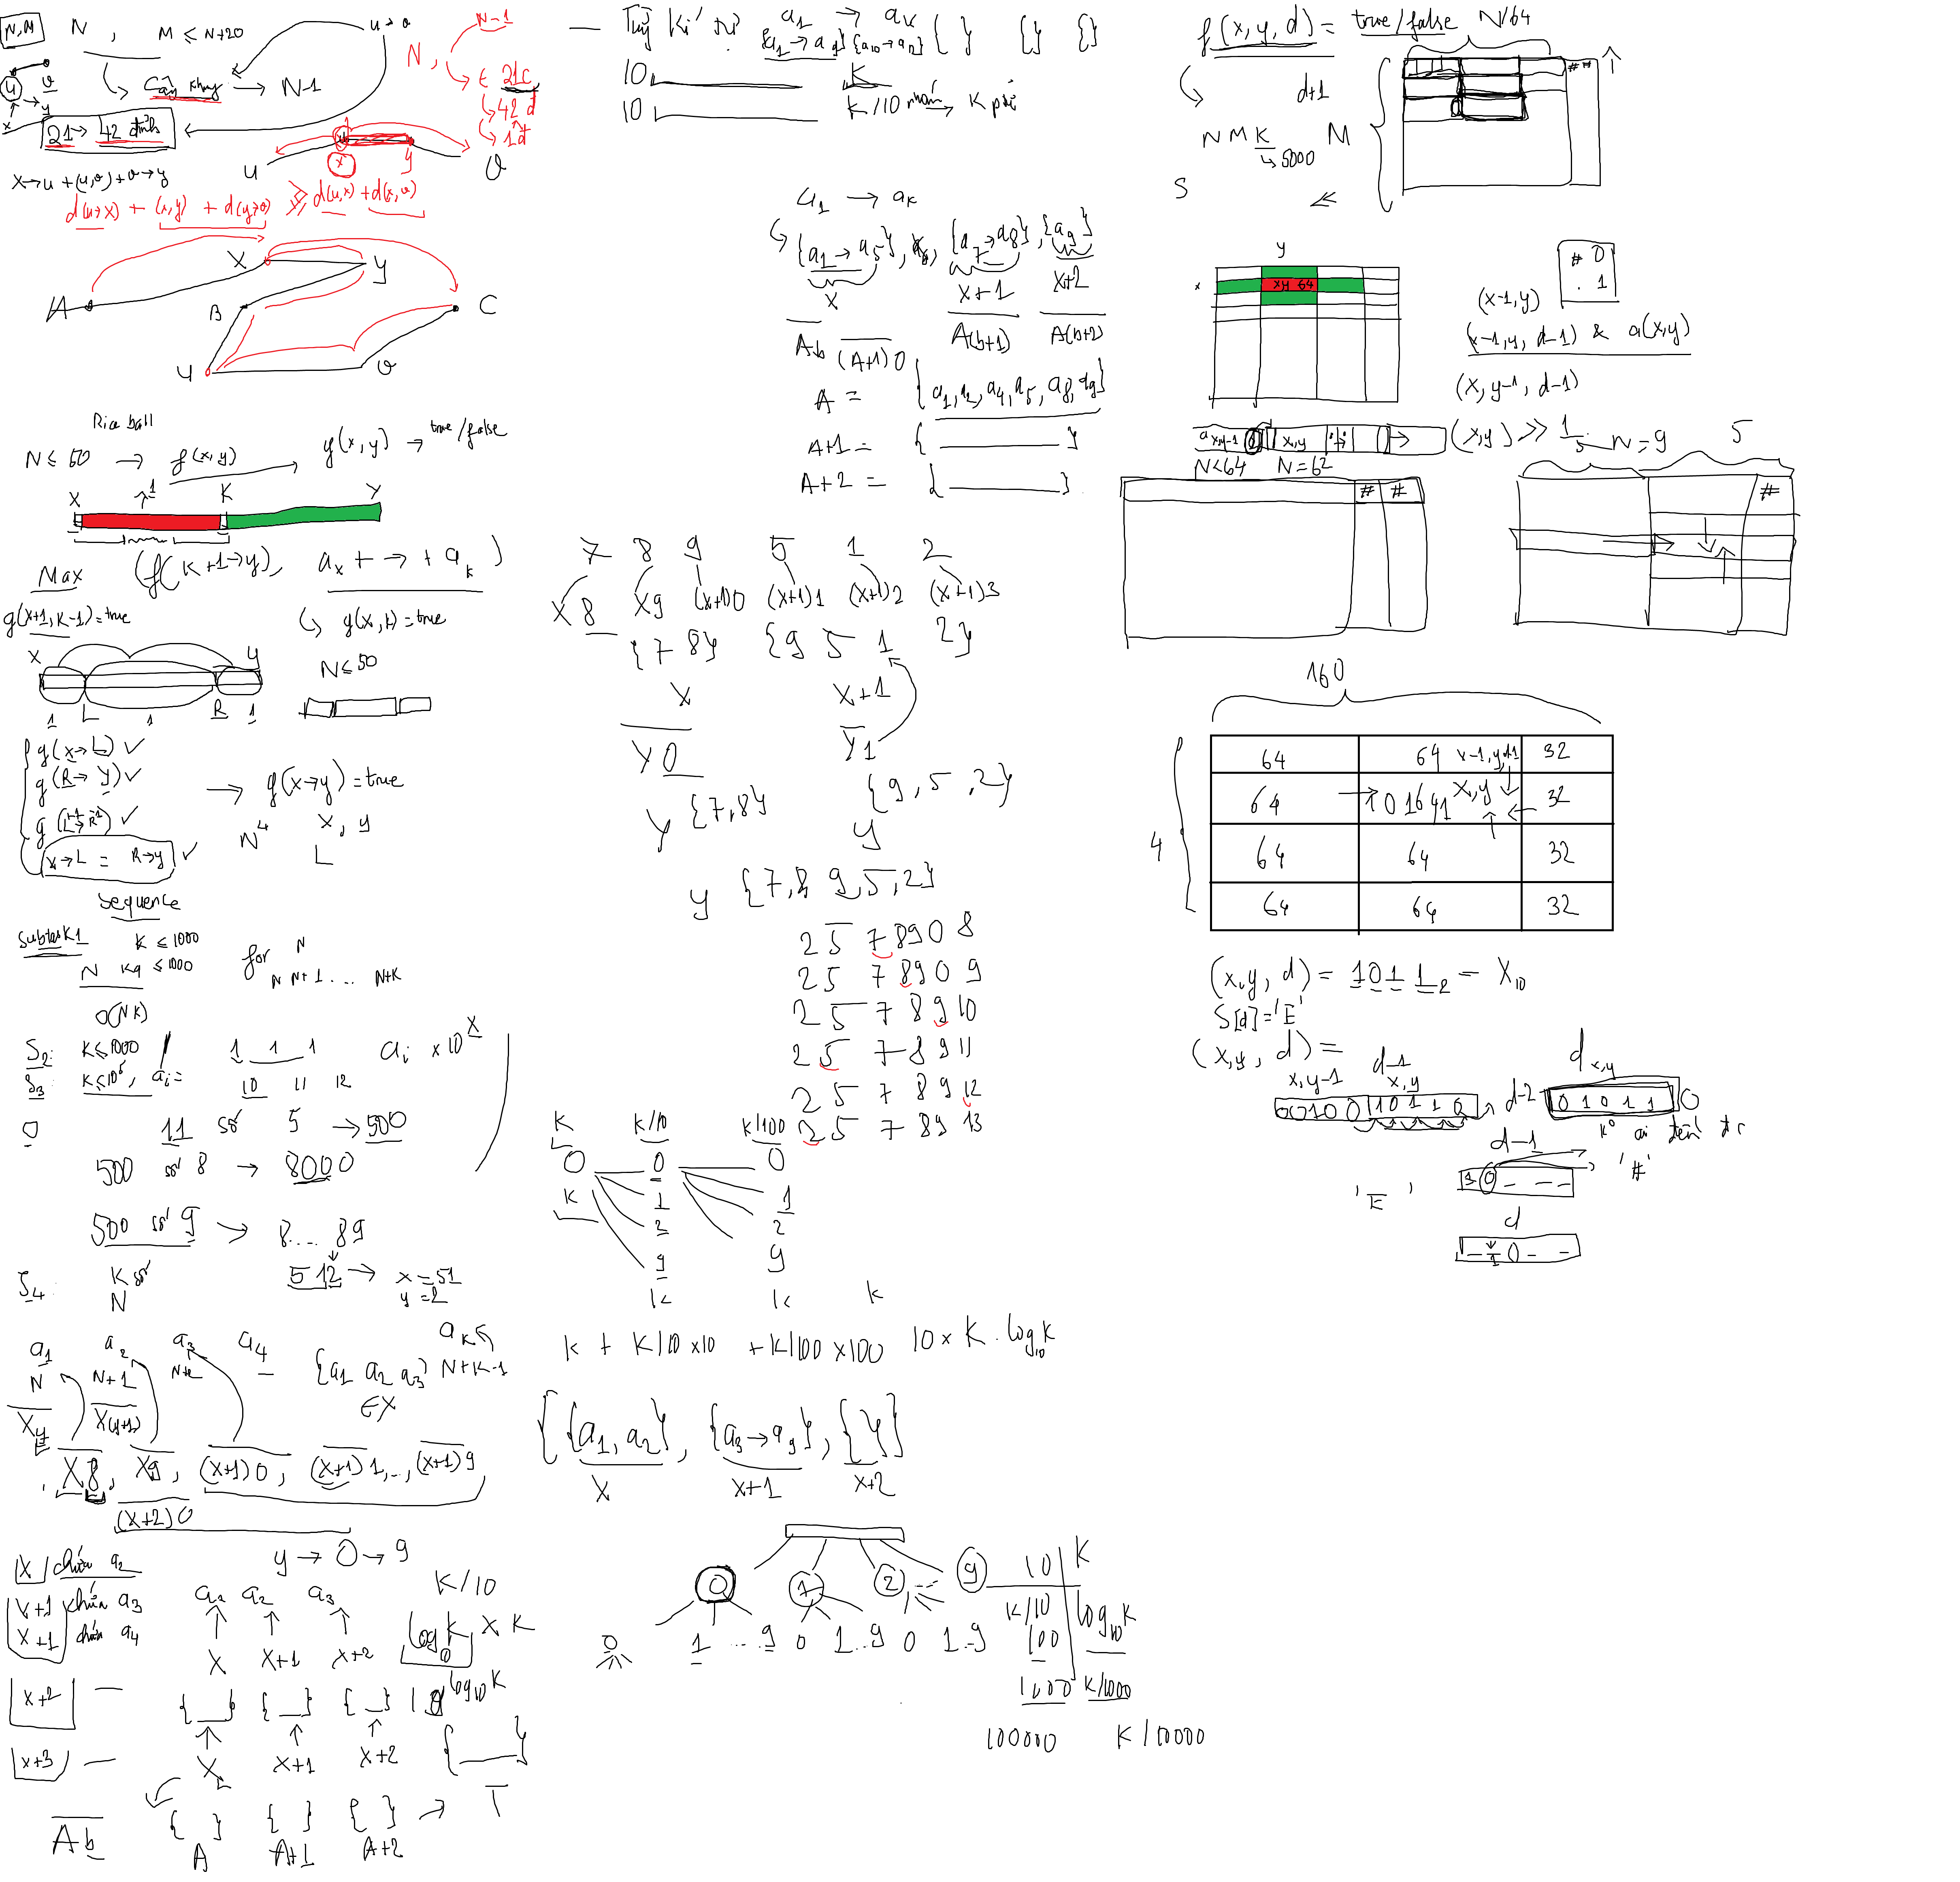 N,M N , M ≤ N+20 u→v
Cây khung → N-1
21→ 42 đỉnh
x→u + (u,v) + v→y
N , N-1
∈ 21c
42 đ
1đ
u x y v
d(u→x) + (x,y) + d(y→v) ≥ d(u,x) + d(x,v)
A X y B C u v
Rice ball
N ≤ 50 → f(x,y) → g(x,y) → true/false
X 1 K Y
Max (f(K+1→y), a_x + → + a_k)
g(x+1,K-1)=true g(x,k)=true
x y N ≤ 50
1 L 1 R 1
g(x→L) ✓
g(R→y) ✓ → g(x→y)=true
g(L+1→R-1) ✓ N^4 x, y
x→L = R→y ✓ L
Sequence
Subtask1 K ≤ 1000
N Kq ≤ 1000 for N
N N+1 ... N+K
O(NK)
S2: K≤1000 1 1 1 a_i × 10^x
S3: K≤10^5, a_i= 10 11 12
0 11 số 5 → 500
500 số 8 → 8000
500 số 9 → 8.... 89
S4: K số 512 → x=51
N y=2
a1 a2 a3 a4 ak
N N+1 N+2 {a1 a2 a3} N+K-1
Xy X(y+1) ∈X
X8, X9, (x+1)0, (x+1)1,.., (x+1)9
(x+2)0
y → 0 → 9
X chứa a2
x+1 chứa a3 a2 a2 a3 K/10
x+1 chứa a4
X X+1 x+2 log10 K × K
x+2 —
{ } { } { } 10^log10K
x+3 — X x+1 x+2 { }
Ab { } { } { } → T
A A+1 A+2
— Tuỳ kí tự a1 → ak
{a1→a9} {a10→a12} { } {} {}
10 K
10 K/10 nhóm → K ptử
a1 → ak
{a1→a5}, a6, {a7→a8}, {a9}
X X+1 X+2
Ab (A+1)0 A(b+1) A(b+2)
A = {a1,a2,a4,a5,a8,a9}
A+1 = { }
A+2 = { }
7 8 9 5 1 2
X8 X9 (x+1)0 (x+1)1 (x+1)2 (x+1)3
{7 8} {9 5 1 2}
X X+1
Y0 Y1
Y {7,8} {9,5,2}
y
y {7,8 9,5,2}
2 5 7 8 9 0 8
2 5 7 8 9 0 9
2 5 7 8 9 10
2 5 7 8 9 11
2 5 7 8 9 12
2 5 7 8 9 13
K K/10 K/100
0 0 0
K 1 1
2 2
9 9
K K K
K + K/10×10 + K/100×100 10×K.log10 K
{{a1,a2}, {a3→a9}, {y}}
X X+1 x+2
0 1 2 9 10 K
0 1 ... 9 0 1..9 0 1..9 K/10 100 log10 K
1000 K/1000
100000 K/10000
f(x,y,d) = true/false N/64
d+1 1 1 1 # #
N M K M
5000
S ≪
y
x xy 64
# 0
. 1
(x-1,y)
(x-1,y, d-1) & a(x,y)
(x, y-1, d-1)
a x,y-1 x,y (x,y) >> 1
N<64 N=62 5 N=9 5
# # #
160
64 64 x-1,y,d-1 32
64 101641 x,y 32
4 64 64 32
64 64 32
(x,y,d) = 1011₂ = X₁₀
S[d]='E'
(x,y,d) =
x,y-1 d-1 x,y d x,y
00100 10110 d-2 01011 0
d-1 K° ai đến đc
10_ _ _ '#'
'E' d
_ 1 0 _ _